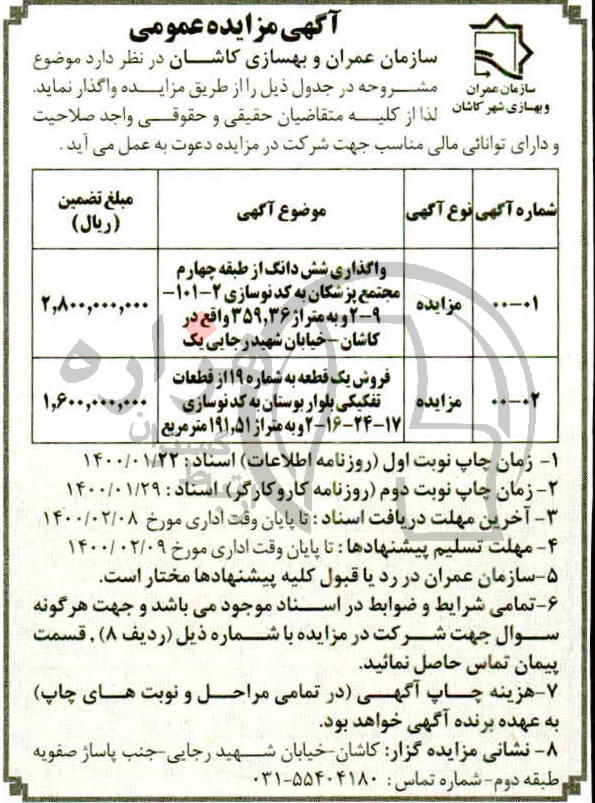 آگهی مزایده عمومی
سازمان عمران
وبهسازی شهر کاشان
سازمان عمران و بهسازی کاشان در نظر دارد موضوع
مشروحه در جدول ذیل را از طریق مزایده واگذار نماید.
لذا از کلیه متقاضیان حقیقی و حقوقی واجد صلاحیت
و دارای توانائی مالی مناسب جهت شرکت در مزایده دعوت به عمل می آید.
شماره آگهی نوع آگهی موضوع آگهی مبلغ تضمین
(ریال)
۰۰-۰۱ مزایده واگذاری شش دانگ از طبقه چهارم
مجتمع پزشکان به کد نوسازی ۲-۱۰۱-
۹-۲ و به متراژ ۳۵۹,۳۶ واقع در
کاشان-خیابان شهید رجایی یک
۲,۸۰۰,۰۰۰,۰۰۰
۰۰-۰۲ مزایده فروش یک قطعه به شماره ۱۹ از قطعات
تفکیکی بلوار بوستان به کد نوسازی
۱۷-۲۴-۱۶-۲ و به متراژ ۱۹۱,۵۱ متر مربع
۱,۶۰۰,۰۰۰,۰۰۰
۱- زمان چاپ نوبت اول (روزنامه اطلاعات) اسناد: ۱۴۰۰/۰۱/۲۲
۲- زمان چاپ نوبت دوم (روزنامه کاروکارگر) اسناد: ۱۴۰۰/۰۱/۲۹
۳- آخرین مهلت دریافت اسناد: تا پایان وقت اداری مورخ ۱۴۰۰/۰۲/۰۸
۴- مهلت تسلیم پیشنهادها: تا پایان وقت اداری مورخ ۱۴۰۰/۰۲/۰۹
۵-سازمان عمران در رد یا قبول کلیه پیشنهادها مختار است.
۶-تمامی شرایط و ضوابط در اسناد موجود می باشد و جهت هرگونه
سوال جهت شرکت در مزایده با شماره ذیل (ردیف ۸)، قسمت
پیمان تماس حاصل نمائید.
۷-هزینه چاپ آگهی (در تمامی مراحل و نوبت های چاپ)
به عهده برنده آگهی خواهد بود.
۸- نشانی مزایده گزار: کاشان-خیابان شهید رجایی-جنب پاساژ صفویه
طبقه دوم-شماره تماس: ۵۵۴۰۴۱۸۰-۰۳۱
هزاره